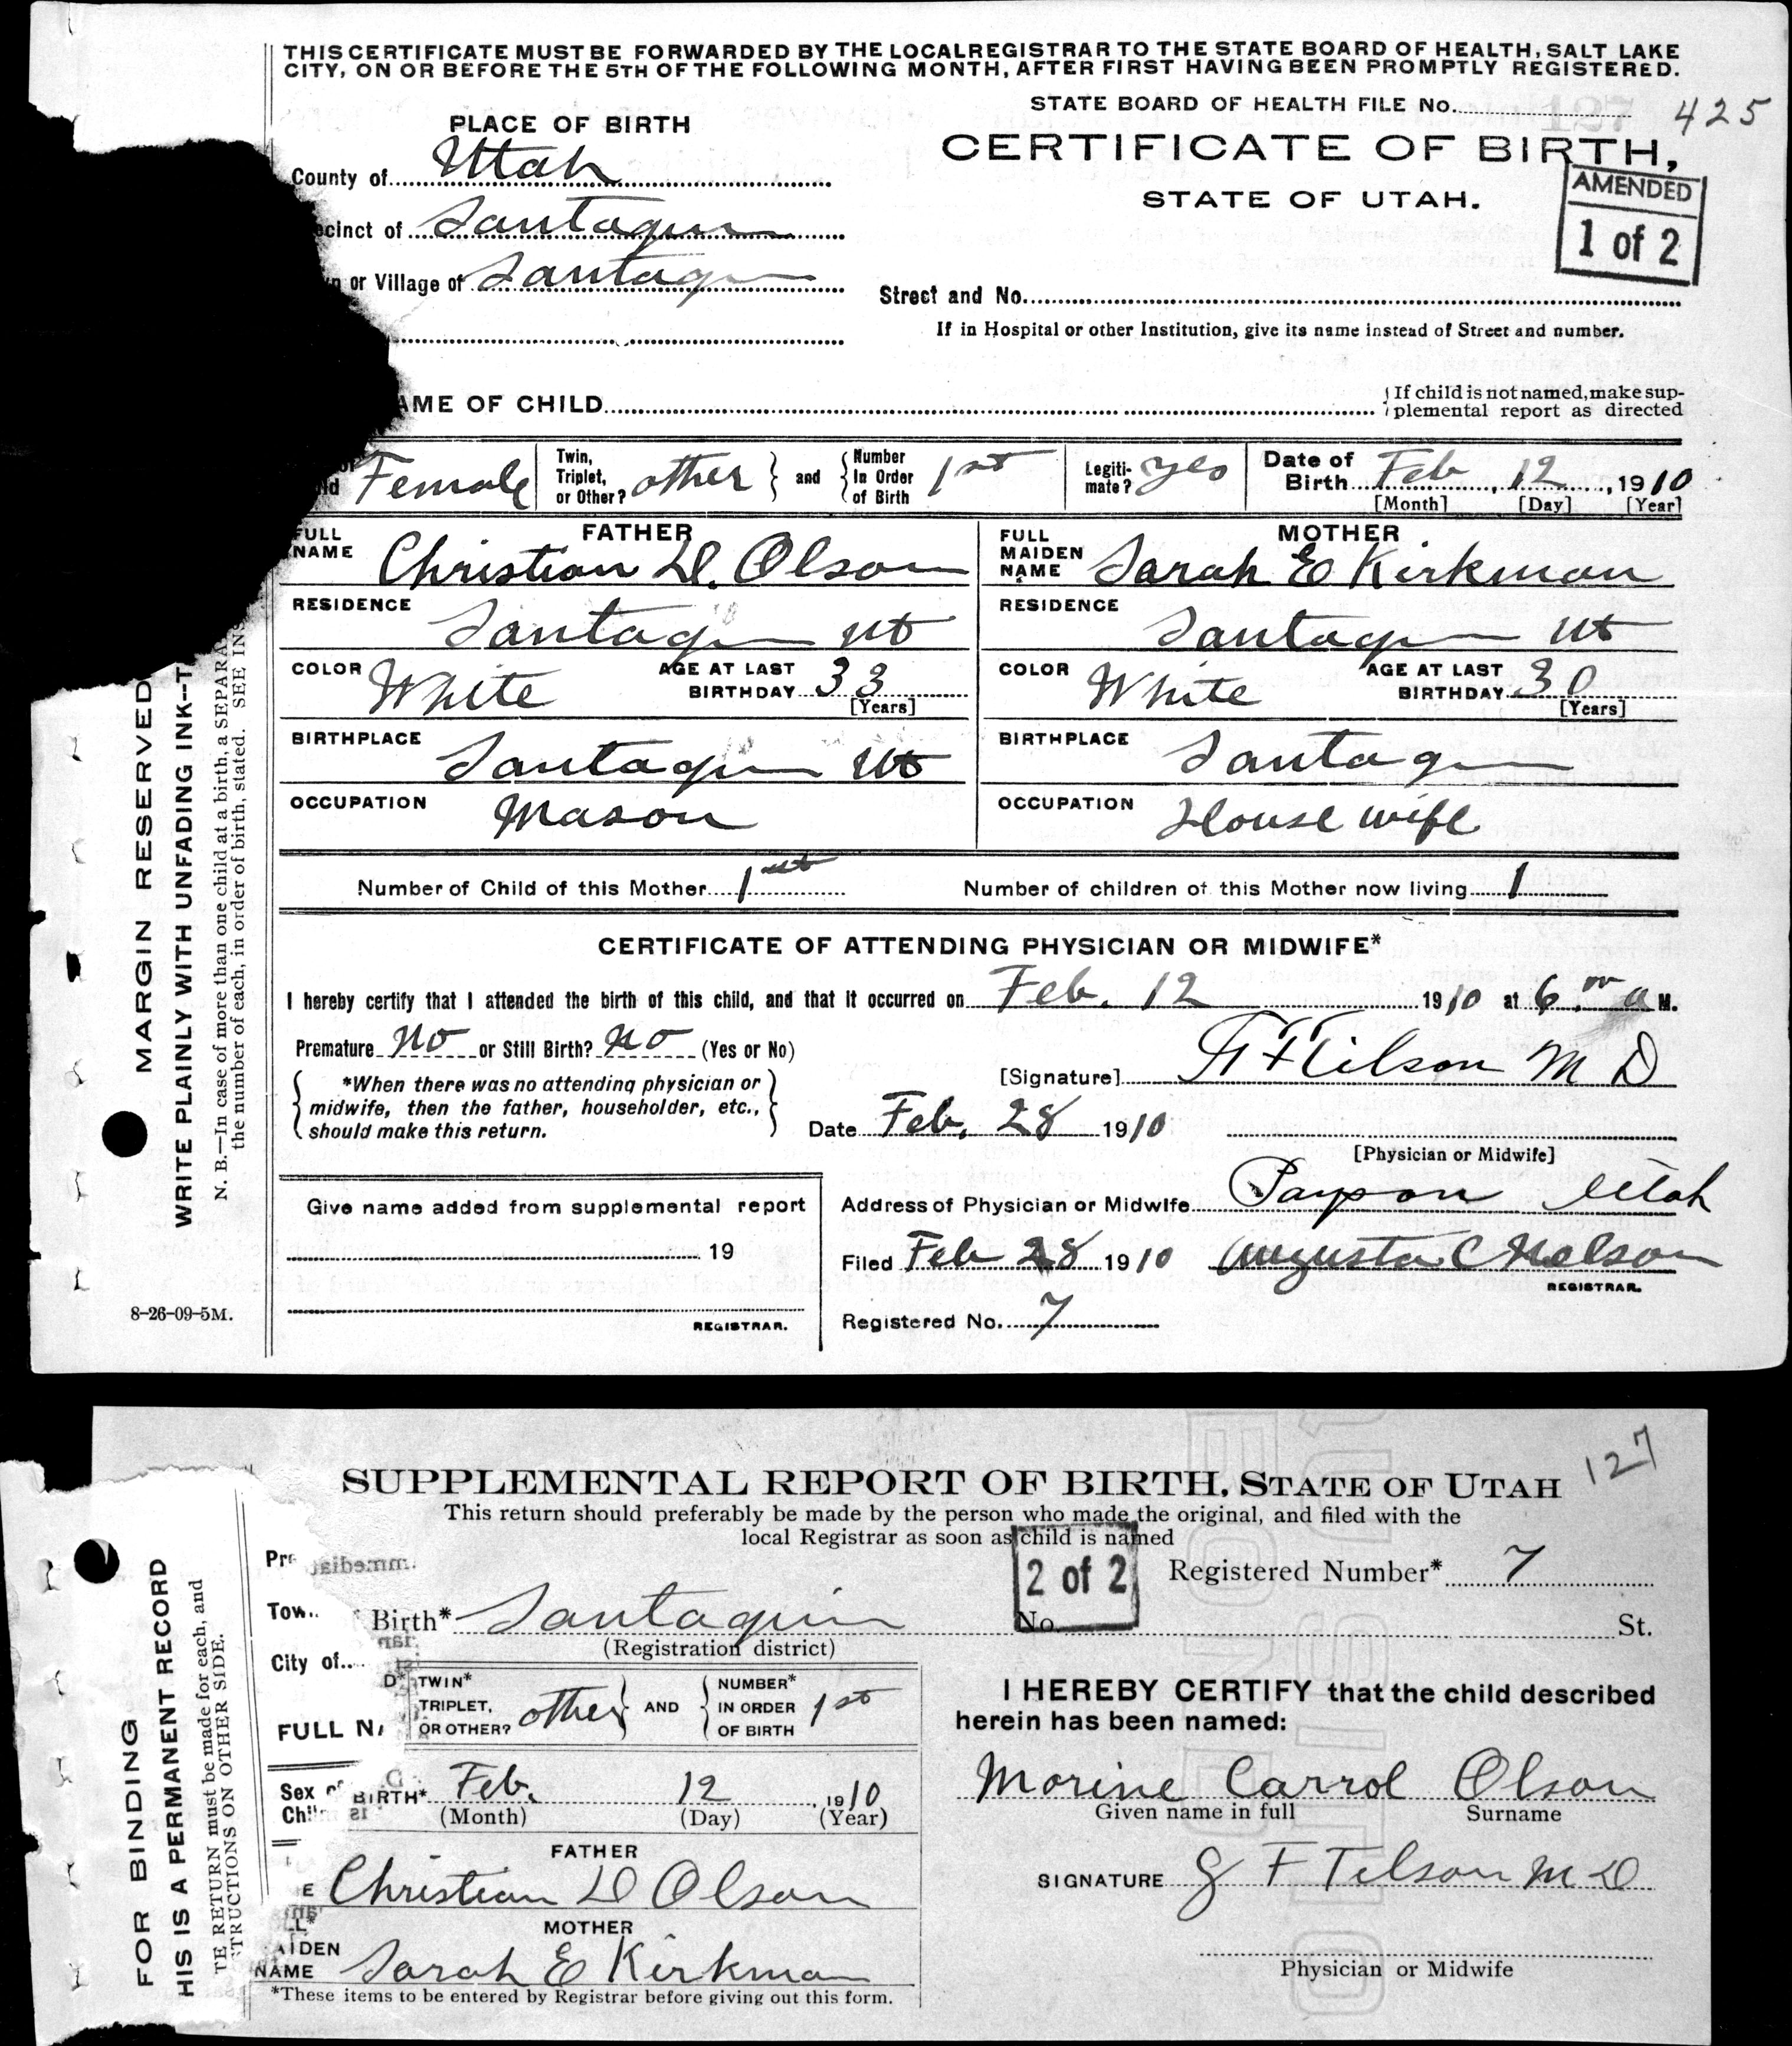 THIS CERTIFICATE MUST BE FORWARDED BY THE LOCAL REGISTRAR TO THE STATE BOARD OF HEALTH, SALT LAKE
CITY, ON OR BEFORE THE 5TH OF THE FOLLOWING MONTH, AFTER FIRST HAVING BEEN PROMPTLY REGISTERED.
STATE BOARD OF HEALTH FILE No. 425
PLACE OF BIRTH
CERTIFICATE OF BIRTH,
STATE OF UTAH.
AMENDED
1 of 2
County of Utah
cinct of Santaquin
or Village of Santaq
Street and No.
If in Hospital or other Institution, give its name instead of Street and number.
AME OF CHILD
If child is not named, make sup-
plemental report as directed
Female
Twin, Triplet, or Other? other and Number In Order of Birth 1st
Legiti-mate? yes
Date of Birth Feb 12, 1910
[Month] [Day] [Year]
FATHER
FULL NAME Christian D. Olson
RESIDENCE Santaqu Ut
COLOR White AGE AT LAST BIRTHDAY 33 [Years]
BIRTHPLACE Santaqu Ut
OCCUPATION Mason
MOTHER
FULL MAIDEN NAME Sarah E Kirkman
RESIDENCE Santaqu Ut
COLOR White AGE AT LAST BIRTHDAY 30 [Years]
BIRTHPLACE Santaq
OCCUPATION House wife
Number of Child of this Mother 1st Number of children of this Mother now living 1
CERTIFICATE OF ATTENDING PHYSICIAN OR MIDWIFE*
I hereby certify that I attended the birth of this child, and that it occurred on Feb. 12 1910 at 6 a M.
Premature no or Still Birth? no (Yes or No)
*When there was no attending physician or
midwife, then the father, householder, etc.,
should make this return.
[Signature] F Tilson M D
Date Feb. 28 1910
[Physician or Midwife]
Give name added from supplemental report
19
REGISTRAR.
Address of Physician or Midwife Payson Utah
Filed Feb 28 1910 Augusta C Nelson
REGISTRAR.
Registered No. 7
MARGIN RESERVED
WRITE PLAINLY WITH UNFADING INK--T
N. B.—In case of more than one child at a birth, a SEPARA
the number of each, in order of birth, stated. SEE INS
8-26-09-5M.
127
SUPPLEMENTAL REPORT OF BIRTH, STATE OF UTAH
This return should preferably be made by the person who made the original, and filed with the
local Registrar as soon as child is named
2 of 2
Registered Number* 7
Birth* Santaquin No. St.
(Registration district)
City of
FULL NA
TWIN* TRIPLET, OR OTHER? other AND NUMBER* IN ORDER OF BIRTH 1st
Sex of
BIRTH* Feb. 12, 1910
(Month) (Day) (Year)
FATHER
Christian D Olson
MOTHER
AIDEN NAME Sarah E Kirkman
*These items to be entered by Registrar before giving out this form.
I HEREBY CERTIFY that the child described
herein has been named:
Morine Carrol Olson
Given name in full Surname
SIGNATURE G F Tilson M D
Physician or Midwife
FOR BINDING
HIS IS A PERMANENT RECORD
TE RETURN must be made for each, and
STRUCTIONS ON OTHER SIDE.